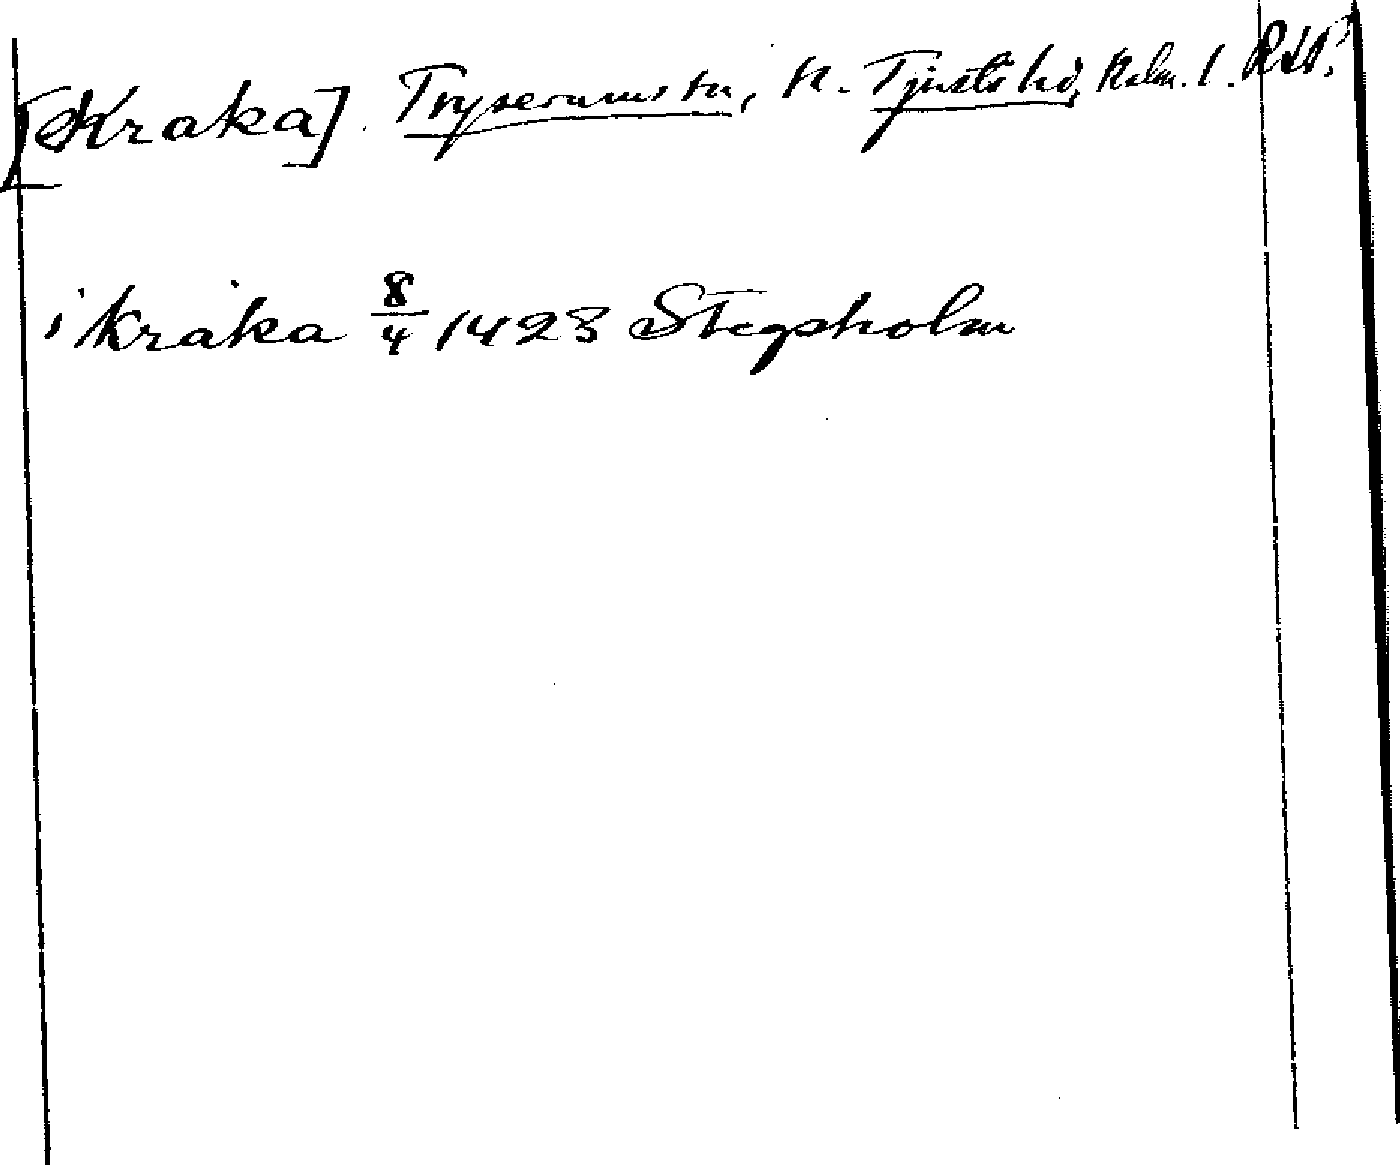 [Kraka]. Tryserums sn, N. Tjusts hd, Kalm. l.
i kraka 8/4 1423 Stegsholm